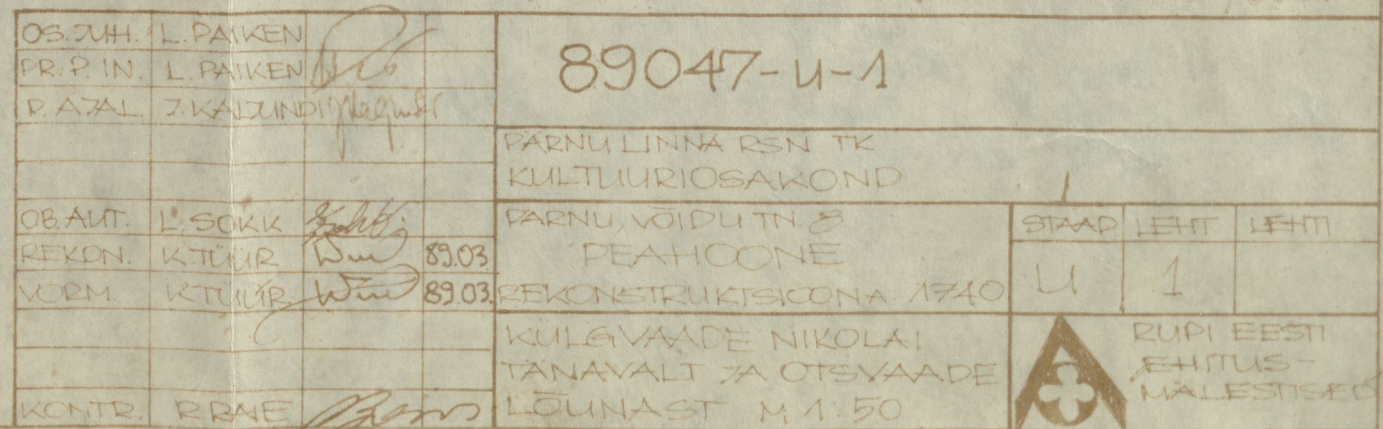 OS. JUH. L. PAIKEN
PR. P. IN. L. PAIKEN
R. AJAL. J. KALJUNDI
OB. AUT. L. SOKK
REKON. K. TÜÜR 89.03
VORM. K. TÜÜR 89.03.
KONTR. R. RAIE
89047-U-1
PÄRNU LINNA RSN TK
KULTUURIOSAKOND
PÄRNU, VÕIDU TN. 8
PEAHOONE
REKONSTRUKTSIOON A. 1740
STAAD LEHT LEHTI
U 1
KÜLGVAADE NIKOLAI
TÄNAVALT JA OTSVAADE
LÕUNAST M 1:50
RUPI EESTI
EHITUS-
MÄLESTISED